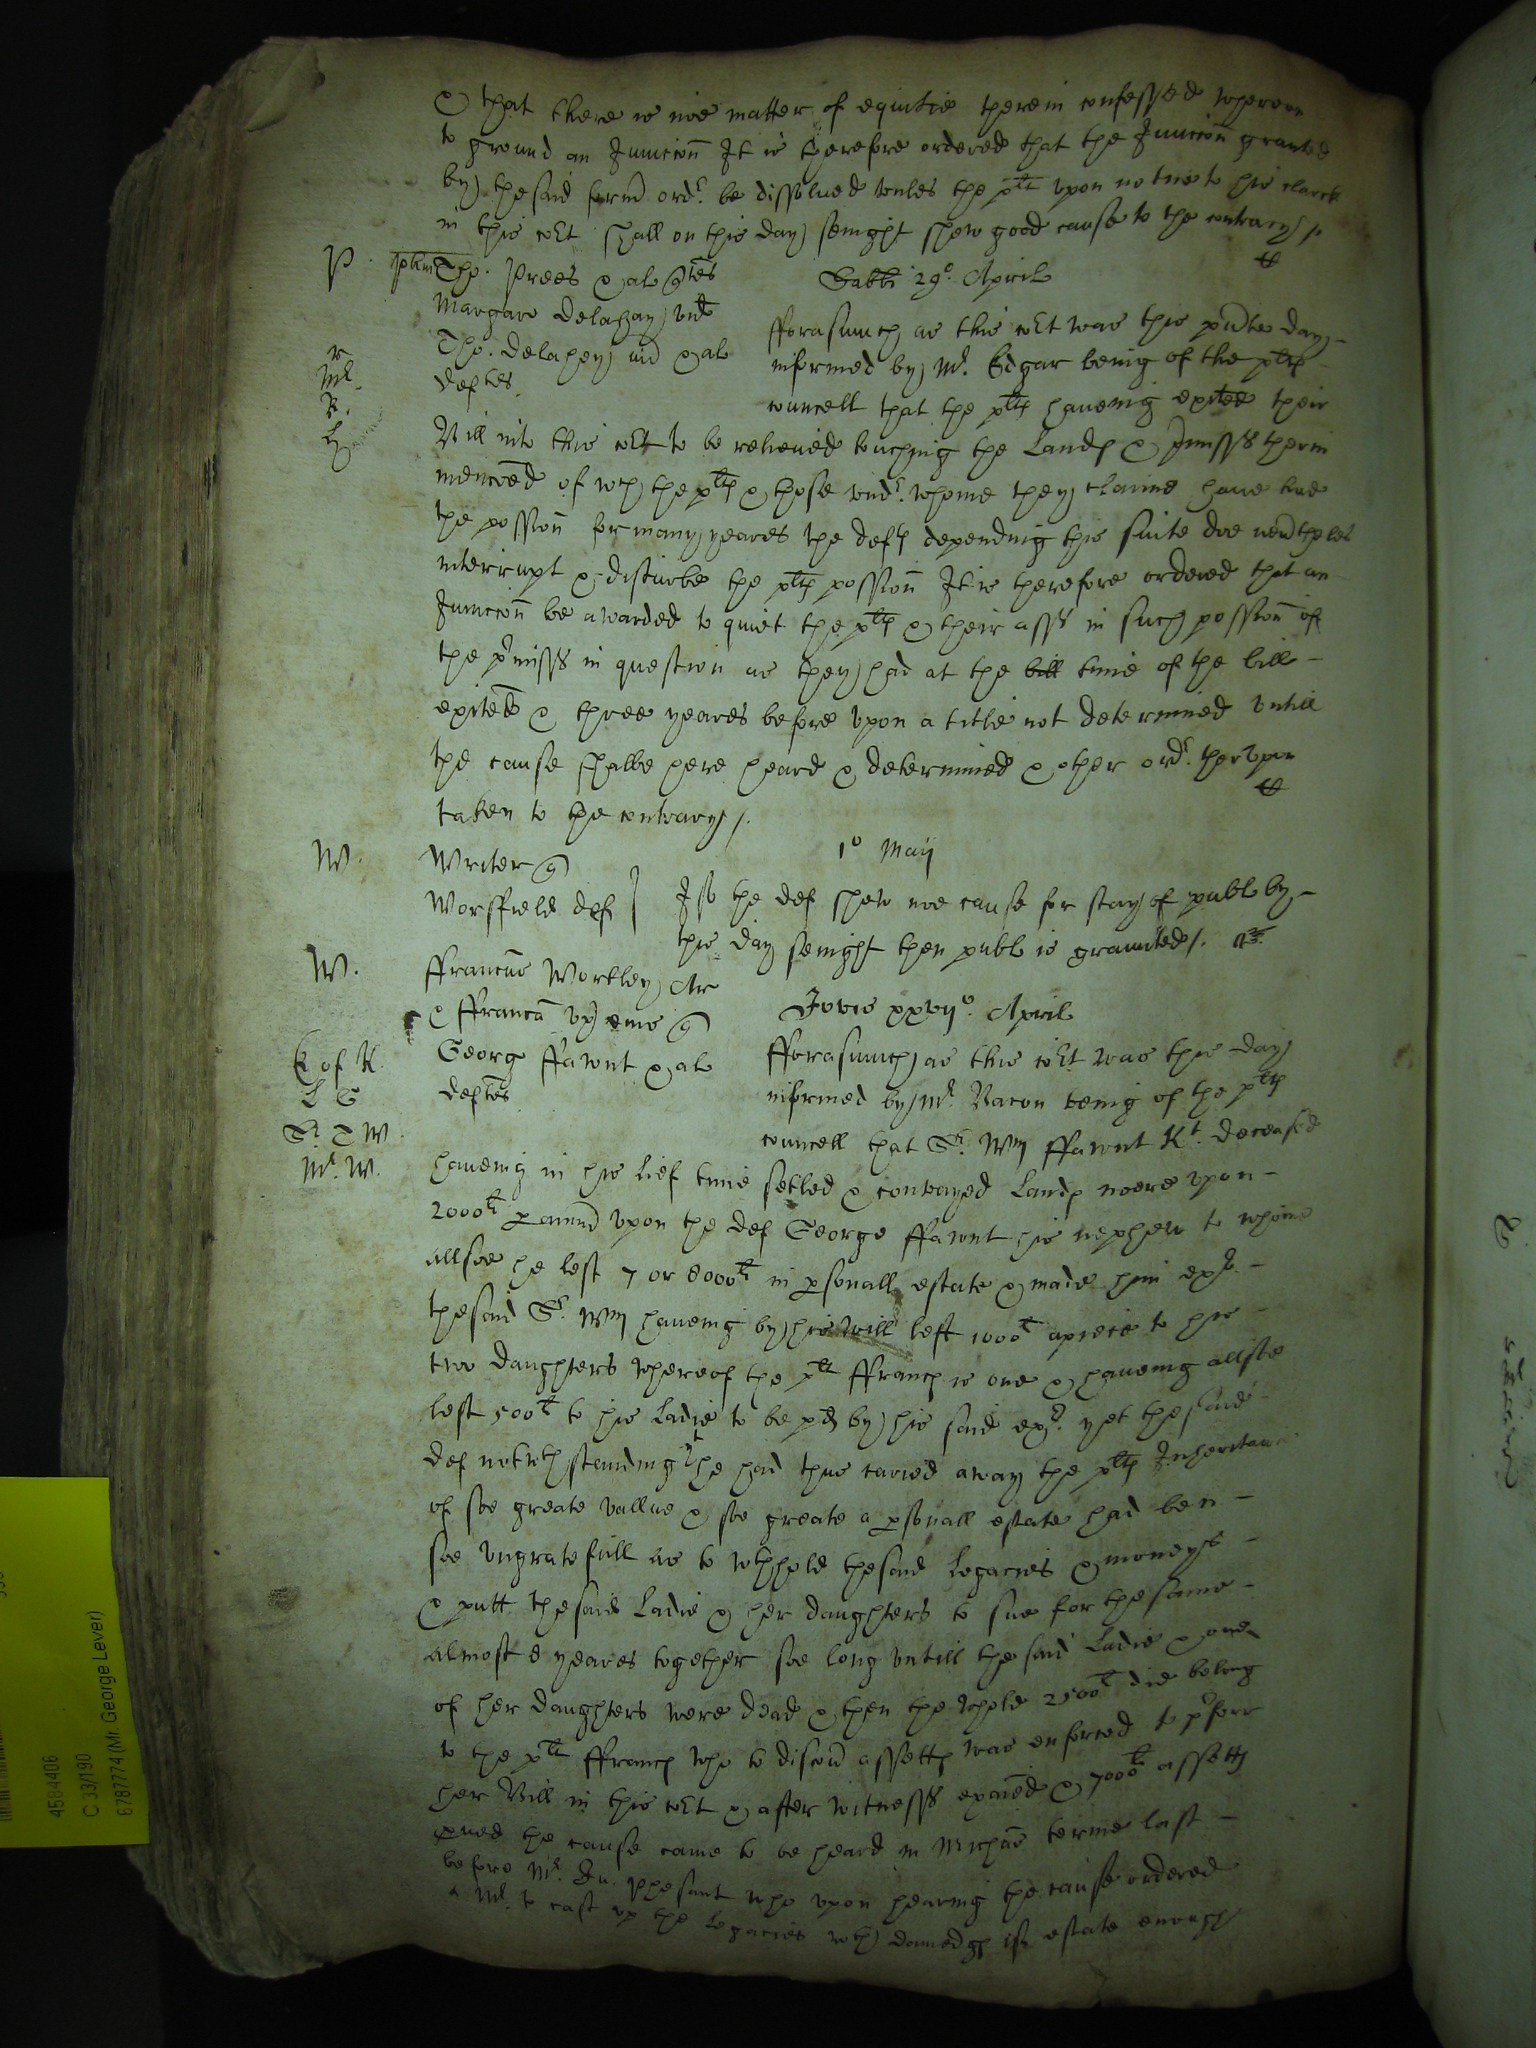 & that there is noe matter of equitie therein confessed whereon
to ground an Iniuncion It is therefore ordered that the Iniuncion granted
by the said form ordr. be dissolued vnles the plt vpon notice to his clarck
in this coᵗt shall on this day senight shew good cause to the contrary /.
P.
Tho. Prees & al qtes
Sabbti 29o. April
Margare Delahay vid
Tho. Delahey & al
deftes.
fforasmuch as this coᵗt was this pnte day
informed by Mr. Edgar being of the plts
councell that the plts haueing exited their
Mr.
R.
Bill into this coᵗt to be releiued touching the Lands & pmisss therin
mencoed of wch the plts & those vndr. whome they clayme haue had
the possion for many yeares the defts depending this suite doe neutheles
interrupt & disturbe the plts possion It is therefore ordered that an
Iniuncion be awarded to quiet the plts & their asss in such possion of
the pᵣmisss in question as they had at the bill time of the bill
exited & three yeares before vpon a title not determined vntill
the cause shalbe here heard & determined & other ordr. thervpon
taken to the contrary /.
W.
Writer q
1o Maij
Worsfield def
If the def shew noe cause for stay of publ by
this day senight then publ is graunted /.
W.
ffrancus Wortley Ar
& ffranca vx eius q
Jovis xxvijo. April
George ffawnt & al
deftes
E of K.
L S
Sr. T W.
Mr. W.
fforasmuch as this coᵗt was this day
informed by Mr. Bacon being of the plts
councell that Sr. Wm ffawnt Kt. deceased
haueing in his lief time setled & conveyed Lands neere vpon
2000li p annu vpon the def George ffawnt his nephew to whome
allsoe he left 7 or 8000li in psonall estate & made him exr.
the said Sr. Wm haueing by his will left 1000li apeice to his
two daughters whereof the plt ffrancs is one & haueing allsoe
left 500li to his Ladie to be pd by his said exr. yet the said
def notwthstanding yt he had thus caried away the plts Inheritance
of soe greate vallue & soe greate a psonall estate had ben
soe vngratefull as to wthhold the said legacies & moneys
& putt the said Ladie & her daughters to sue for the same
almost 8 yeares together soe long vntill the said Ladie & one
of her daughters were dead & then the whole 2500li did belong
to the plt ffrancs who to discou assetts was enforced to pᵣferr
her Bill in this coᵗt & after witnesss examed & 7000li assetts
pued the cause came to be heard in Michas terme last
before Mr. Ju. Phesant who vpon hearing the cause ordered
a Mr. to cast vp the legacies wth damedgs if estate enough
4584406
C 33/190
6787774 (Mr. George Lever)